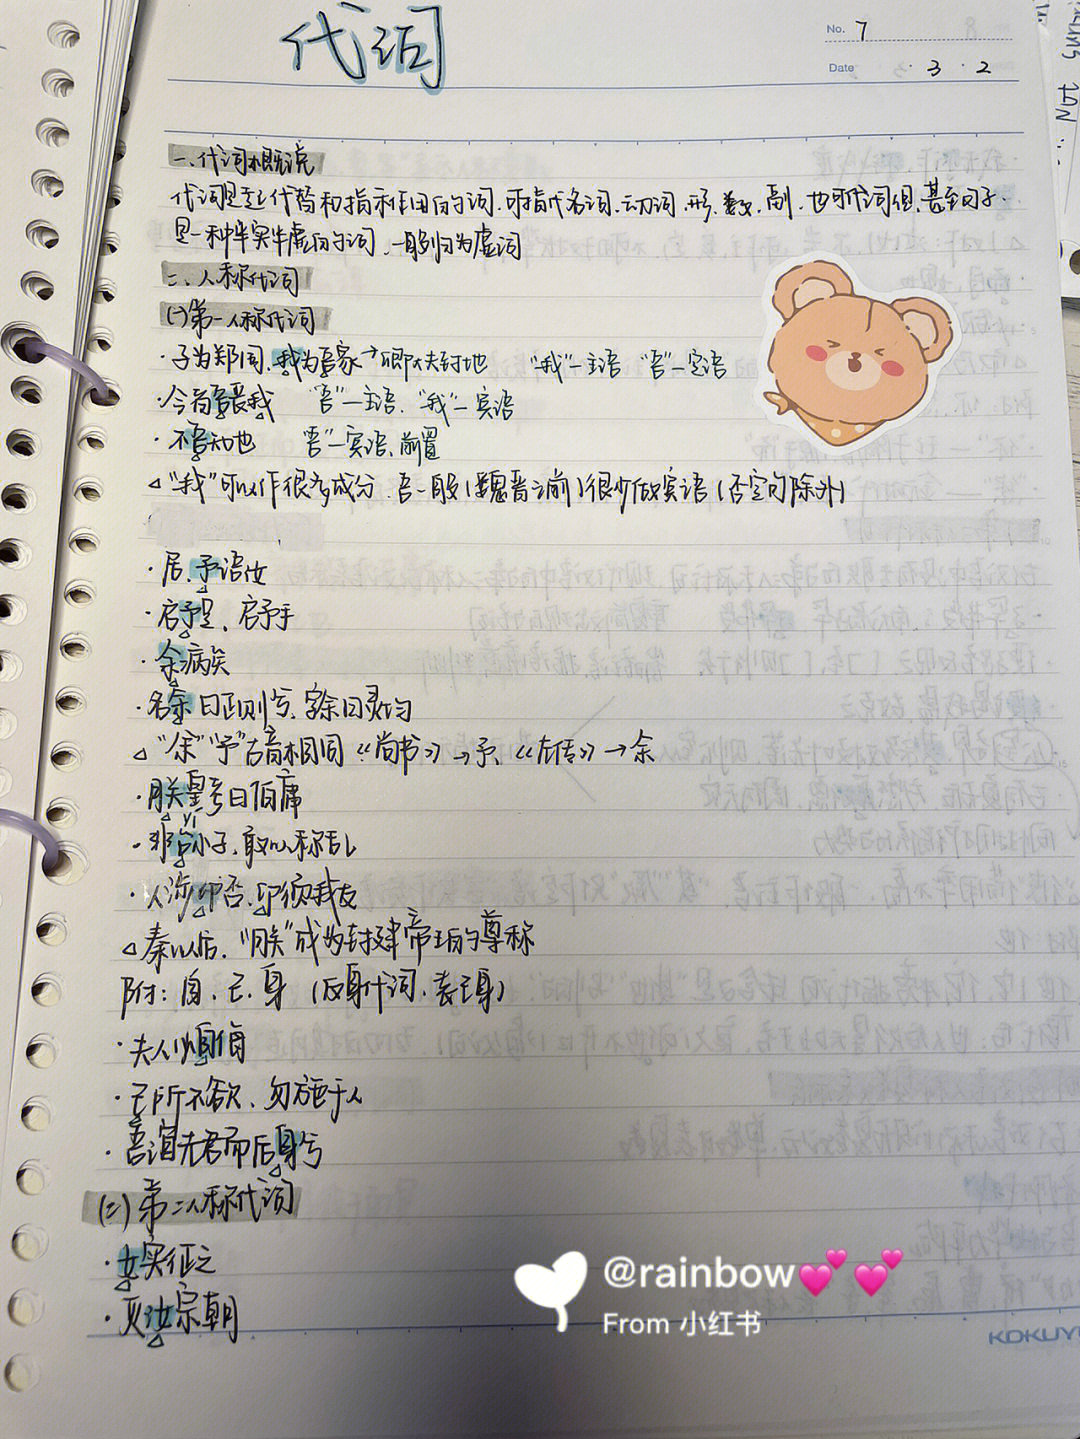 代词
No. 7
Date 3 · 2
一、代词概说
代词是起代替和指示作用的词.可指代名词、动词、形、数、副、也可代词组,甚至句子.
是一种半实半虚的词、一般归为虚词
二、人称代词
(一)第一人称代词
·子为郑国,我为吾家→卿大夫封地 "我"—主语 "吾"—定语
·今者吾丧我 "吾"—主语、"我"—宾语
·不吾知也 "吾"—宾语、前置
△"我"可以作很多成分、吾一般(魏晋之前)很少做宾语(否定句除外)
·居,予语女
·启予足、启予手
·余病矣
·名余曰正则兮、字余曰灵均
△"余""予"古音相同《尚书》→予、《左传》→余
·朕皇考曰伯庸
yí
·非台小子、敢以称乱
·人涉卬否、卬须我友
△秦以后、"朕"成为封建帝王的尊称
附:自、己、身(反身代词、表己身)
·夫人必自侮
·己所不欲、勿施于人
·吾谊先君而后身兮
(二)第二人称代词
·女实征之
·夙汝宗朝
@rainbow💕💕
From 小红书
KOKUY